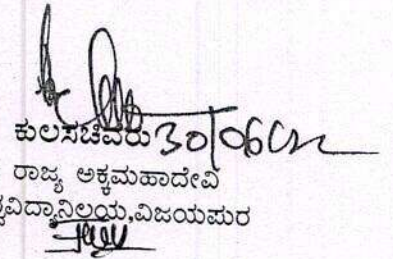 ಕುಲಸಚಿವರು 30/06
ರಾಜ್ಯ ಅಕ್ಕಮಹಾದೇವಿ
ವಿದ್ಯಾನಿಲಯ,ವಿಜಯಪುರ